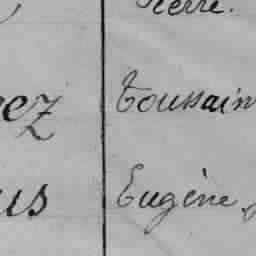 Pierre.
ez Toussain
us Eugène,